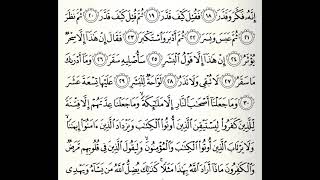 إِنَّهُ فَكَّرَ وَقَدَّرَ ١٨ فَقُتِلَ كَيْفَ قَدَّرَ ١٩ ثُمَّ قُتِلَ كَيْفَ قَدَّرَ ٢٠ ثُمَّ نَظَرَ
٢١ ثُمَّ عَبَسَ وَبَسَرَ ٢٢ ثُمَّ أَدْبَرَ وَاسْتَكْبَرَ ٢٣ فَقَالَ إِنْ هَٰذَا إِلَّا سِحْرٌ
يُؤْثَرُ ٢٤ إِنْ هَٰذَا إِلَّا قَوْلُ الْبَشَرِ ٢٥ سَأُصْلِيهِ سَقَرَ ٢٦ وَمَا أَدْرَاكَ
مَا سَقَرُ ٢٧ لَا تُبْقِي وَلَا تَذَرُ ٢٨ لَوَّاحَةٌ لِّلْبَشَرِ ٢٩ عَلَيْهَا تِسْعَةَ عَشَرَ
٣٠ وَمَا جَعَلْنَا أَصْحَابَ النَّارِ إِلَّا مَلَائِكَةً وَمَا جَعَلْنَا عِدَّتَهُمْ إِلَّا فِتْنَةً
لِّلَّذِينَ كَفَرُوا لِيَسْتَيْقِنَ الَّذِينَ أُوتُوا الْكِتَابَ وَيَزْدَادَ الَّذِينَ آمَنُوا إِيمَانًا
وَلَا يَرْتَابَ الَّذِينَ أُوتُوا الْكِتَابَ وَالْمُؤْمِنُونَ وَلِيَقُولَ الَّذِينَ فِي قُلُوبِهِم مَّرَضٌ
وَالْكَافِرُونَ مَاذَا أَرَادَ اللَّهُ بِهَٰذَا مَثَلًا كَذَٰلِكَ يُضِلُّ اللَّهُ مَن يَشَاءُ وَيَهْدِي